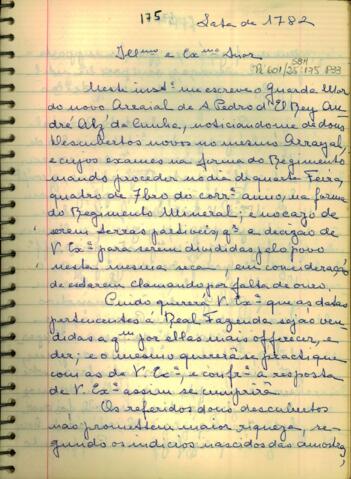 175
Data de 1782
Illmo e Exmo Snor
SBH
Pl 601/25:175 P33
Neste instº me escreve o Guarda Mor
do novo Arraial de S. Pedro d'El Rey An-
dré Alz' da Cunha, noticiandome de dous
Descubertos novos no mesmo Arrayal,
e cujos exames na forma do Regimento
mando proceder no dia de quarta Feira,
quatro de 7bro do corrº anno, na forma
do Regimento Mineral; e no cazo de
serem terras partiveis, qº e decizão de
V. Exª para serem divididas pelo povo
nesta mesma seca, em consideração
de estarem clamando por falta de ouro.
Cuido quererá V. Exª que as datas
pertencentes á Real Fazenda sejão ven
didas a qm por ellas mais offerecer, e
der; e o mesmo quererá se practique
com as de V. Exª, e confrª a resposta
de V. Exª assim se cumprirá
Os referidos dous descubertos
não promettem maior riqueza, se-
gundo os indicios nascidos das amostras,